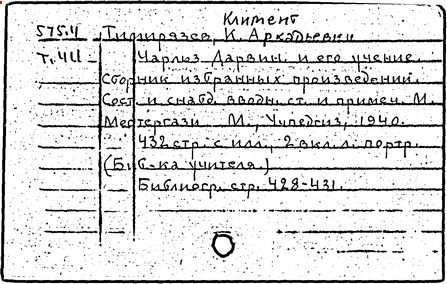 Климент
575.4 Тимирязев, К. Аркадьевич
Т.411 Чарльз Дарвин и его учение.
Сборник избранных произведений.
Сост. и снабд. вводн. ст. и примеч. М.
Местергази М., Учпедгиз, 1940.
432 стр. с илл., 2 вкл. л. портр.
(Биб-ка учителя.)
Библиогр. стр. 428-431.